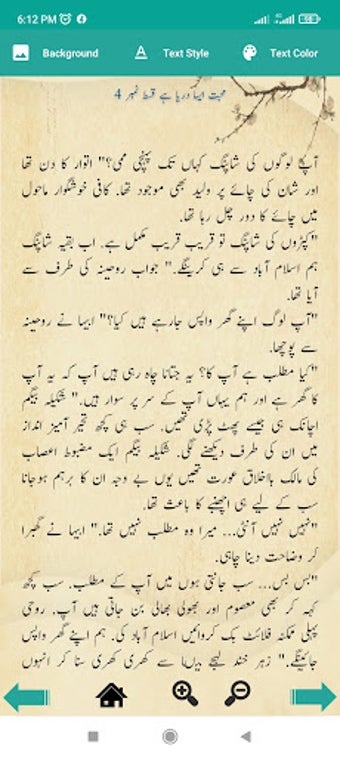 6:12 PM
Background Text Style Text Color
محبت ایسا دریا ہے قسط نمبر 4
آپ لوگوں کی شاپنگ کہاں تک پہنچی ممی؟" اتوار کا دن تھا
اور شان کی چائے پر ولید بھی موجود تھا. کافی خوشگوار ماحول
میں چائے کا دور چل رہا تھا.
"کپڑوں کی شاپنگ تو قریب قریب مکمل ہے. اب بقیہ شاپنگ
ہم اسلام آباد سے ہی کرینگے." جواب روحینہ کی طرف سے
آیا تھا.
"آپ لوگ اپنے گھر واپس جارہے ہیں کیا؟" ابیہا نے روحینہ
سے پوچھا.
"کیا مطلب ہے آپ کا؟ یہ جتانا چاہ رہی ہیں آپ کہ یہ آپ
کا گھر ہے اور ہم یہاں آپ کے سر پر سوار ہیں." شکیلہ بیگم
اچانک ہی جیسے پھٹ پڑی تھیں. سب ہی کچھ تحیر آمیز انداز
میں ان کی طرف دیکھنے لگی. شکیلہ بیگم ایک مضبوط اعصاب
کی مالک بااخلاق عورت تھیں یوں بے وجہ ان کا برہم ہوجانا
سب کے لیے ہی اچنبھے کا باعث تھا.
"نہیں نہیں آنٹی... میرا وہ مطلب نہیں تھا." ابیہا نے گھبرا
کر وضاحت دینا چاہی.
"بس بس... سب جانتی ہوں میں آپ کے مطلب. سب کچھ
کہہ کر بھی معصوم اور بھولی بھالی بن جاتی ہیں آپ. روحی
پہلی ممکنہ فلائٹ بک کروائیں اسلام آباد کی. ہم اپنے گھر واپس
جائینگے." زہر خند لہجے میں سے کھری کھری سنا کر انہوں